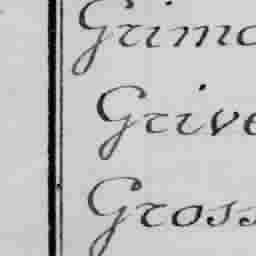 Grima
Grive
Gross